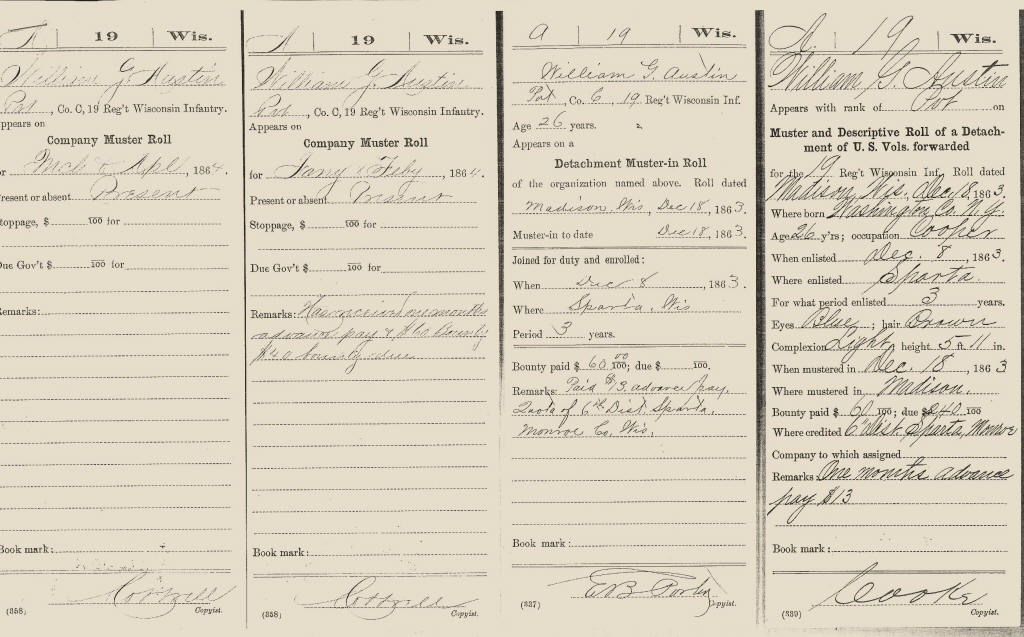 A | 19 | Wis.
William G. Austin
Pvt, Co. C, 19 Reg't Wisconsin Infantry.
Appears on
Company Muster Roll
for Mch & Apl, 1864.
Present or absent Present
Stoppage, $ 100 for
Due Gov't $ 100 for
Remarks:
Book mark:
(358) Copyist.
A | 19 | Wis.
William G. Austin
Pvt, Co. C, 19 Reg't Wisconsin Infantry.
Appears on
Company Muster Roll
for Jany & Feby, 1864.
Present or absent Present
Stoppage, $ 100 for
Due Gov't $ 100 for
Remarks: Has received one months
advance pay & $60 Bounty
$40 bounty due
Book mark:
(358) Copyist.
A | 19 | Wis.
William G. Austin
Pvt, Co. C, 19 Reg't Wisconsin Inf.
Age 26 years.
Appears on a
Detachment Muster-in Roll
of the organization named above. Roll dated
Madison, Wis, Dec 18, 1863.
Muster-in to date Dec 18, 1863.
Joined for duty and enrolled:
When Dec 8, 1863.
Where Sparta, Wis
Period 3 years.
Bounty paid $ 60 00/100; due $ 100.
Remarks: Paid $13. advance pay.
Quota of 6th Dist. Sparta,
Monroe Co. Wis.
Book mark:
(337) Copyist.
A. | 19 | Wis.
William G. Austin
Appears with rank of Pvt on
Muster and Descriptive Roll of a Detach-
ment of U. S. Vols. forwarded
for the 19 Reg't Wisconsin Inf. Roll dated
Madison, Wis. Dec 18, 1863.
Where born Washington Co. N.Y.
Age 26 y'rs; occupation Cooper
When enlisted Dec. 8, 1863.
Where enlisted Sparta.
For what period enlisted 3 years.
Eyes Blue; hair Brown
Complexion Light; height 5 ft. 11 in.
When mustered in Dec. 18, 1863
Where mustered in Madison.
Bounty paid $ 60 100; due $240 100
Where credited 6" Dist. Sparta, Monroe
Company to which assigned
Remarks: One months advance
pay $13
Book mark:
Cooke
(339) Copyist.